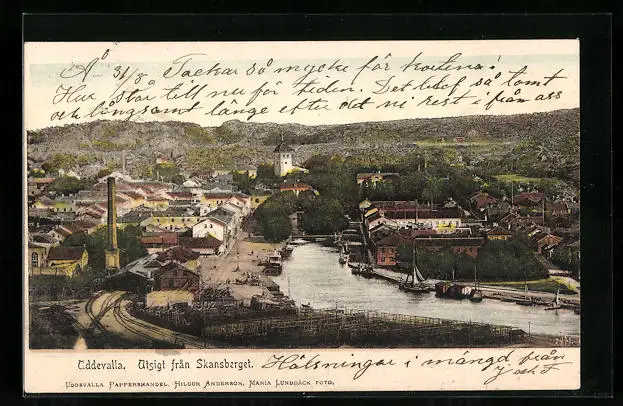 Å 31/8 Tackar så mycke för korten!
Hur står till nu för tiden. Det blef så tomt
och långsamt länge efter det ni rest ifrån oss
Uddevalla. Utsigt från Skansberget.
Hälsningar i mängd från
Uddevalla Pappershandel, Hildur Anderson, Maria Lundbäck foto.